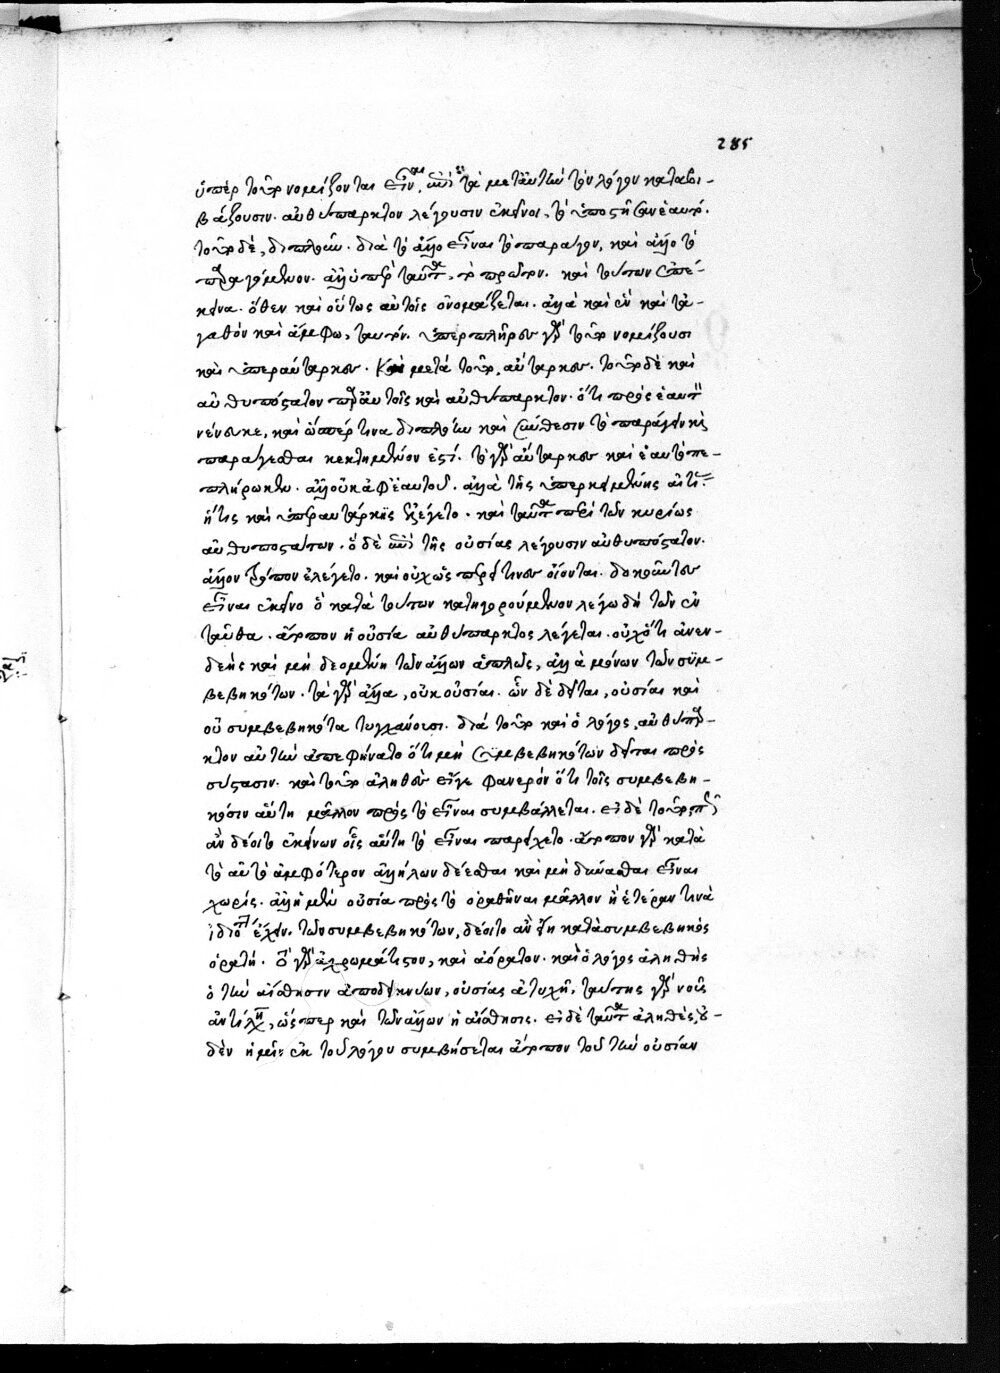 285
ὑπὲρ τοῦτο νομίζονται εἶναι, ἐπὶ τὰ μετ' αὐτὴν τὸν λόγον καταβι-
βάζουσιν. αὐθύπαρκτον λέγουσιν ἐκεῖνοι, τὸ ὑποστῆσαν ἑαυτό.
τοῦτο δὲ, διπλοῦν. διὰ τὸ ἄλλο εἶναι τὸ παράγον, καὶ ἄλλο τὸ
παραγόμενον. ἀλλ' ὑπὲρ ταῦτα, τὸ πρῶτον. καὶ τούτων ἐπέ-
κεινα. ὅθεν καὶ οὕτως αὐτοῖς ὀνομάζεται. ἀλλὰ καὶ ἓν καὶ τἀ-
γαθὸν καὶ ἄμφω, ταυτόν. ὑπερπλῆρες γὰρ τοῦτο νομίζουσι
καὶ ὑπεραύταρκες. καὶ μετὰ τοῦτο, αὔταρκες. τοῦτο δὲ καὶ
αὐθυπόστατον παρ' αὐτοῖς καὶ αὐθύπαρκτον. ὅτι πρὸς ἑαυτὸ
νένευκε, καὶ ὥσπερ τινα διπλόην καὶ σύνθεσιν τὸ παράγειν καὶ
παράγεσθαι κεκτημένον ἐστί. τὸ γὰρ αὔταρκες καὶ ἑαυτὸ πε-
πλήρωκεν. ἀλλ' οὐκ ἀφ' ἑαυτοῦ. ἀλλὰ τῆς ὑπερκειμένης αἰτίας
ἥτις καὶ ὑπεραυτάρκης ἐλέγετο. καὶ ταῦτα περὶ τῶν κυρίως
αὐθυποστάτων. ὃ δὲ ἐπὶ τῆς οὐσίας λέγουσιν αὐθυπόστατον.
ἄλλον τρόπον ἐλέγετο. καὶ οὐχ ὥς τινες οἴονται. δοκοῦντες
εἶναι ἐκεῖνο ὃ κατὰ τούτων κατηγορούμενον λέγω δὴ τῶν ἐν
ταῦθα. ἆρ' οὖν ἡ οὐσία αὐθύπαρκτος λέγεται. οὐχ ὅτι ἀνεν-
δεὴς καὶ μὴ δεομένη τῶν ἄλλων ἁπλῶς, ἀλλὰ μόνων τῶν συμ-
βεβηκότων. τὰ γὰρ ἄλλα, οὐκ οὐσίαι. ὧν δὲ δεῖται, οὐσίαι καὶ
οὐ συμβεβηκότα τυγχάνουσι. διὰ τοῦτο καὶ ὁ λόγος, αὐθύπαρ-
κτον αὐτὴν ἀπεφήνατο ὅτι μὴ συμβεβηκότων δεῖται πρὸς
σύστασιν. καὶ τοῦτο ἀληθὲς εἴγε φανερὸν ὅτι τοῖς συμβεβη-
κόσιν αὕτη μᾶλλον πρὸς τὸ εἶναι συμβάλλεται. εἰ δὲ τοῦτο, πῶς
ἂν δέοιτο ἐκείνων οἷς αὕτη τὸ εἶναι παρείχετο. ἄτοπον γὰρ κατὰ
τὸ αὐτὸ ἀμφότερον ἀλλήλων δέεσθαι καὶ μὴ δύνασθαι εἶναι
χωρίς. ἀλλ' ἡ μὲν οὐσία πρὸς τὸ ὁραθῆναι μᾶλλον ἢ ἑτέραν τινὰ
ἰδιότητα ἔχειν, τῶν συμβεβηκότων, δέοιτο ἂν εἴη κατὰ συμβεβηκὸς
ὁρατή. τὸ γὰρ ἀχρωμάτιστον, καὶ ἀόρατον. καὶ ὁ λόγος ἀληθὴς
ὁ τὴν αἴσθησιν ἀποδεικνύων, οὐσίας ἀτυχῆ, ταύτης γὰρ νοῦς
ἀντιλη, ὥσπερ καὶ τῶν ἄλλων ἡ αἴσθησις. εἰ δὲ ταῦτα ἀληθὲς, οὐ-
δὲν ἡμῖν ἐκ τοῦ λόγου συμβήσεται ἄτοπον τοῦ τὴν οὐσίαν